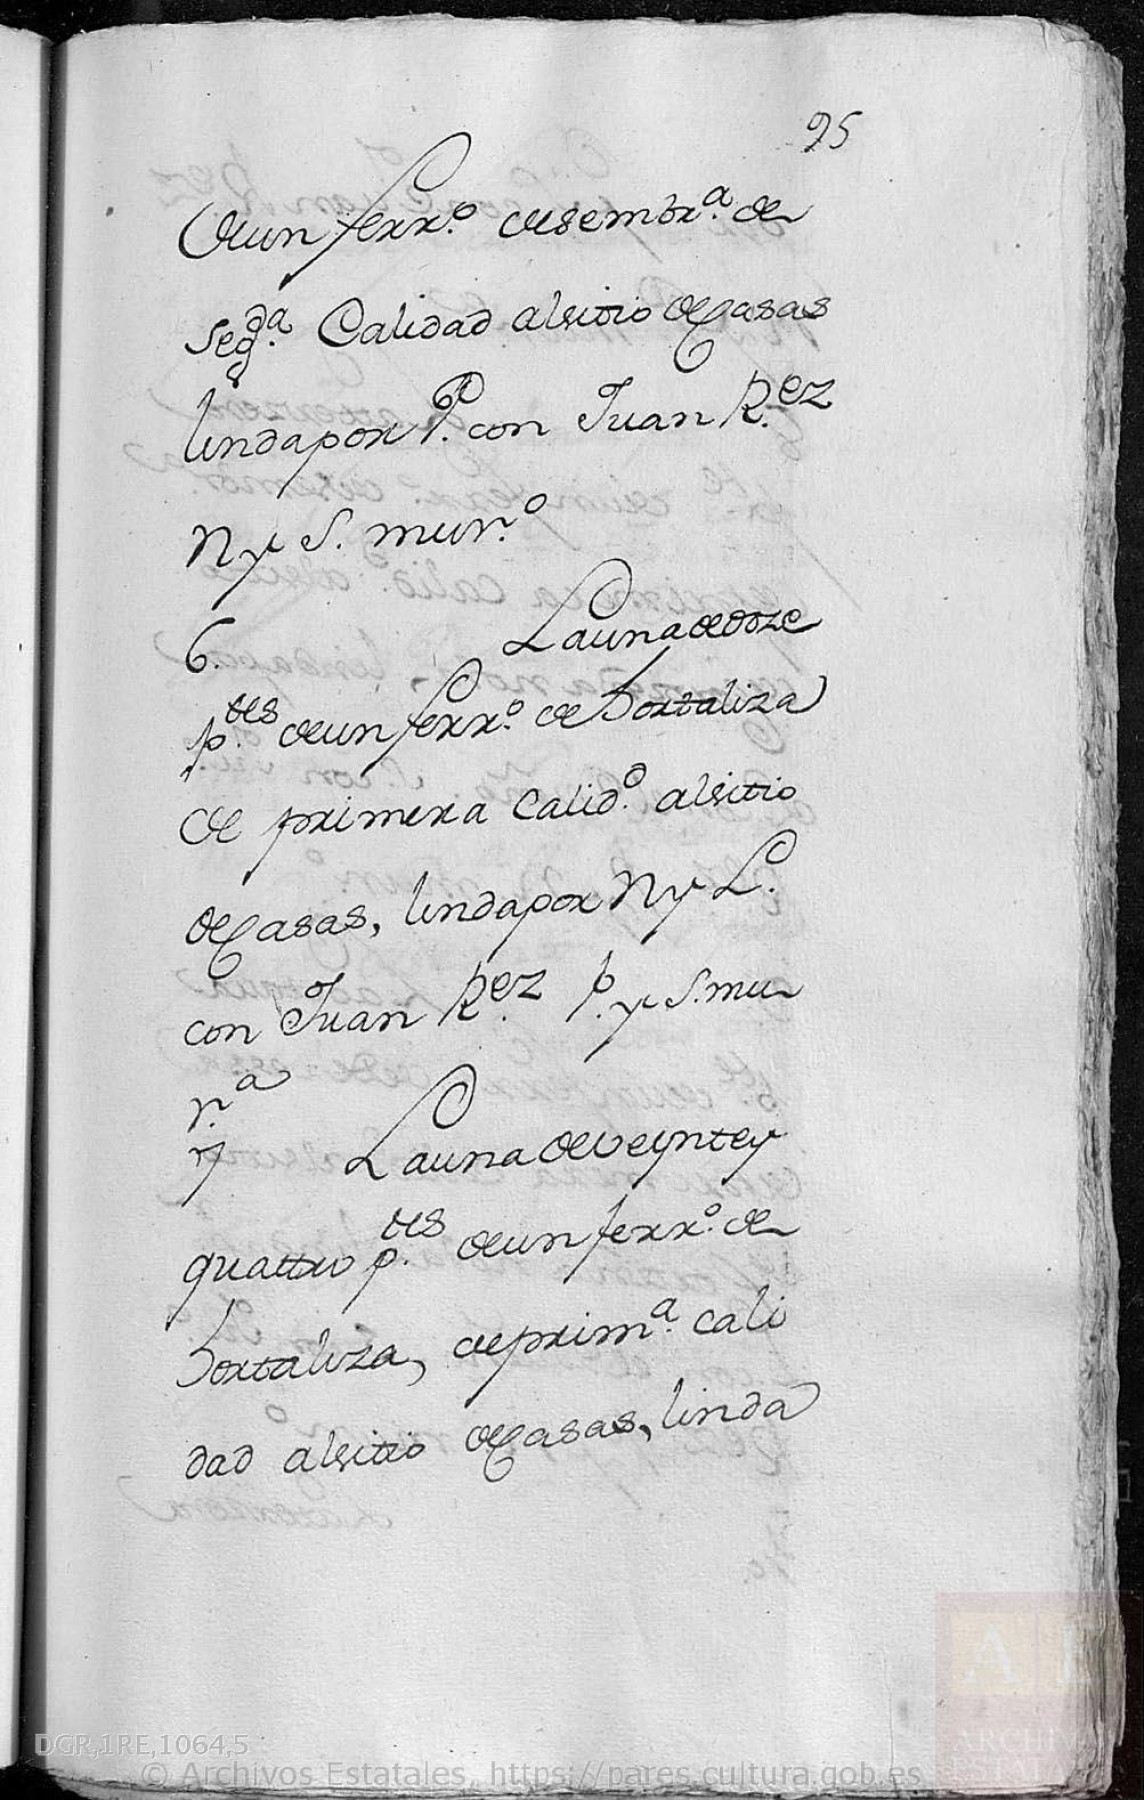 95
de un ferr.º de sembr.ª de
seg.da Calidad al sitio de Casas
linda por P. con Juan R.ez
N y S. mur.º
6. La una de doze
p.tes de un ferr.º de hortaliza
de primera Calid.d al sitio
de Casas, linda por N y L.
con Juan R.ez P. y S. mu
r.ª
7 La una de veynte y
quattro p.tes de un ferr.º de
hortaliza, de prim.ª cali
dad al sitio de Casas, linda
DGR,1RE,1064,5
© Archivos Estatales, https://pares.cultura.gob.es